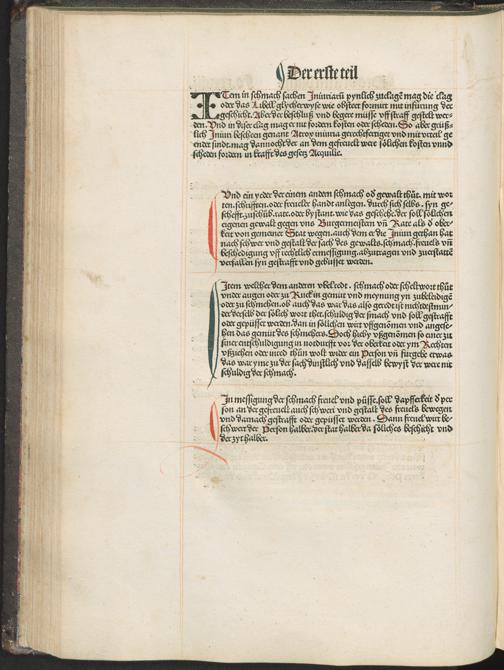 Der erste teil
Item in schmach sachen Iniuriarū pynlich zuclagē mag die clag
oder das Libell glycherwyse wie obsteet formirt mit infürung der
geschicht. Aber der beschluß vnd begere müsse vff straff gestelt wer-
den. Vnd in diser clag mag er nit fordern kosten oder scheden. So aber
lich Iniurien bescheen genant Atrox iniuria gerechtfertiget vnd mit vrteil ge
endet sindt. mag dannocht der an dem gefreuelt were sölichen kosten vnnd
scheden fordern in krafft des gesetz Aequilie.
Vnd ein yeder der einem andern schmach od gewalt thüt. mit wor
ten. schrifften. oder freueler handt anlegen. durch sich selbs. syn ge-
schefft. zuschüb. rate. oder bystant. wie das geschehe. der soll sölichen
eigenen gewalt gegen vns Burgermeistern vn Rate als d ober-
keit von gemeiner Stat wegen. auch dem er die Iniuri gethan hat
nach schwer vnd gestalt der sach des gewalts. schmach. freuels vn
beschedigung vff rechtlich ermessigung. abzutragen vnd zuerstattē
verfallen syn gestrafft vnd gebüsset werden.
Item welher dem anderen vbel redt. schmach oder scheltwort thüt
vnder augen oder zu Ruck in gemüt vnd meynung yn zubeleidigē
oder zu schmehen. ob auch das war das also geredt ist nichtdestmin-
der derselb der sölich wort thet. schuldig der smach vnd soll gestrafft
oder gepüsset werden. dan in sölichen wirt vffgenomen vnd angese-
hen das gemüt des schmehers. Doch hieby vßgenomen so einer zu
siner entschuldigung in notdurfft vor der oberkeit oder ym Rechten
vßziehen oder inred thün wolt wider ein Person vn fürgebe etwas
das war yme zu der sach dinstlich vnd dasselb bewyst der wer nit
schuldig der schmach.
In messigung der schmach freuel vnd püsse. soll dapfferkeit d per
son an der gefreuelt auch schwere vnd ein gestalt des freuels bewegen
vnd darnach gestrafft oder gepüsset werden. Dann freuel wirt be-
schwert der Person halber. der stat halber da söliches beschicht vnd
der zyt halber.